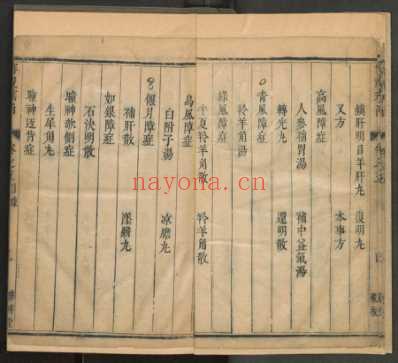 鎮肝明目羊肝丸 復明丸
又方 本事方
高風障症
人參補胃湯 補中益氣湯
轉光丸 還明散
青風障症
羚羊角湯
綠風障症
半夏羚羊角散 羚羊角散
烏風障症
白附子湯 涼膽丸
偃月障症
補肝散 墜翳丸
如銀障症
石決明散
瞳神欹側症
生犀角丸
瞳神返背症
nayona.cn